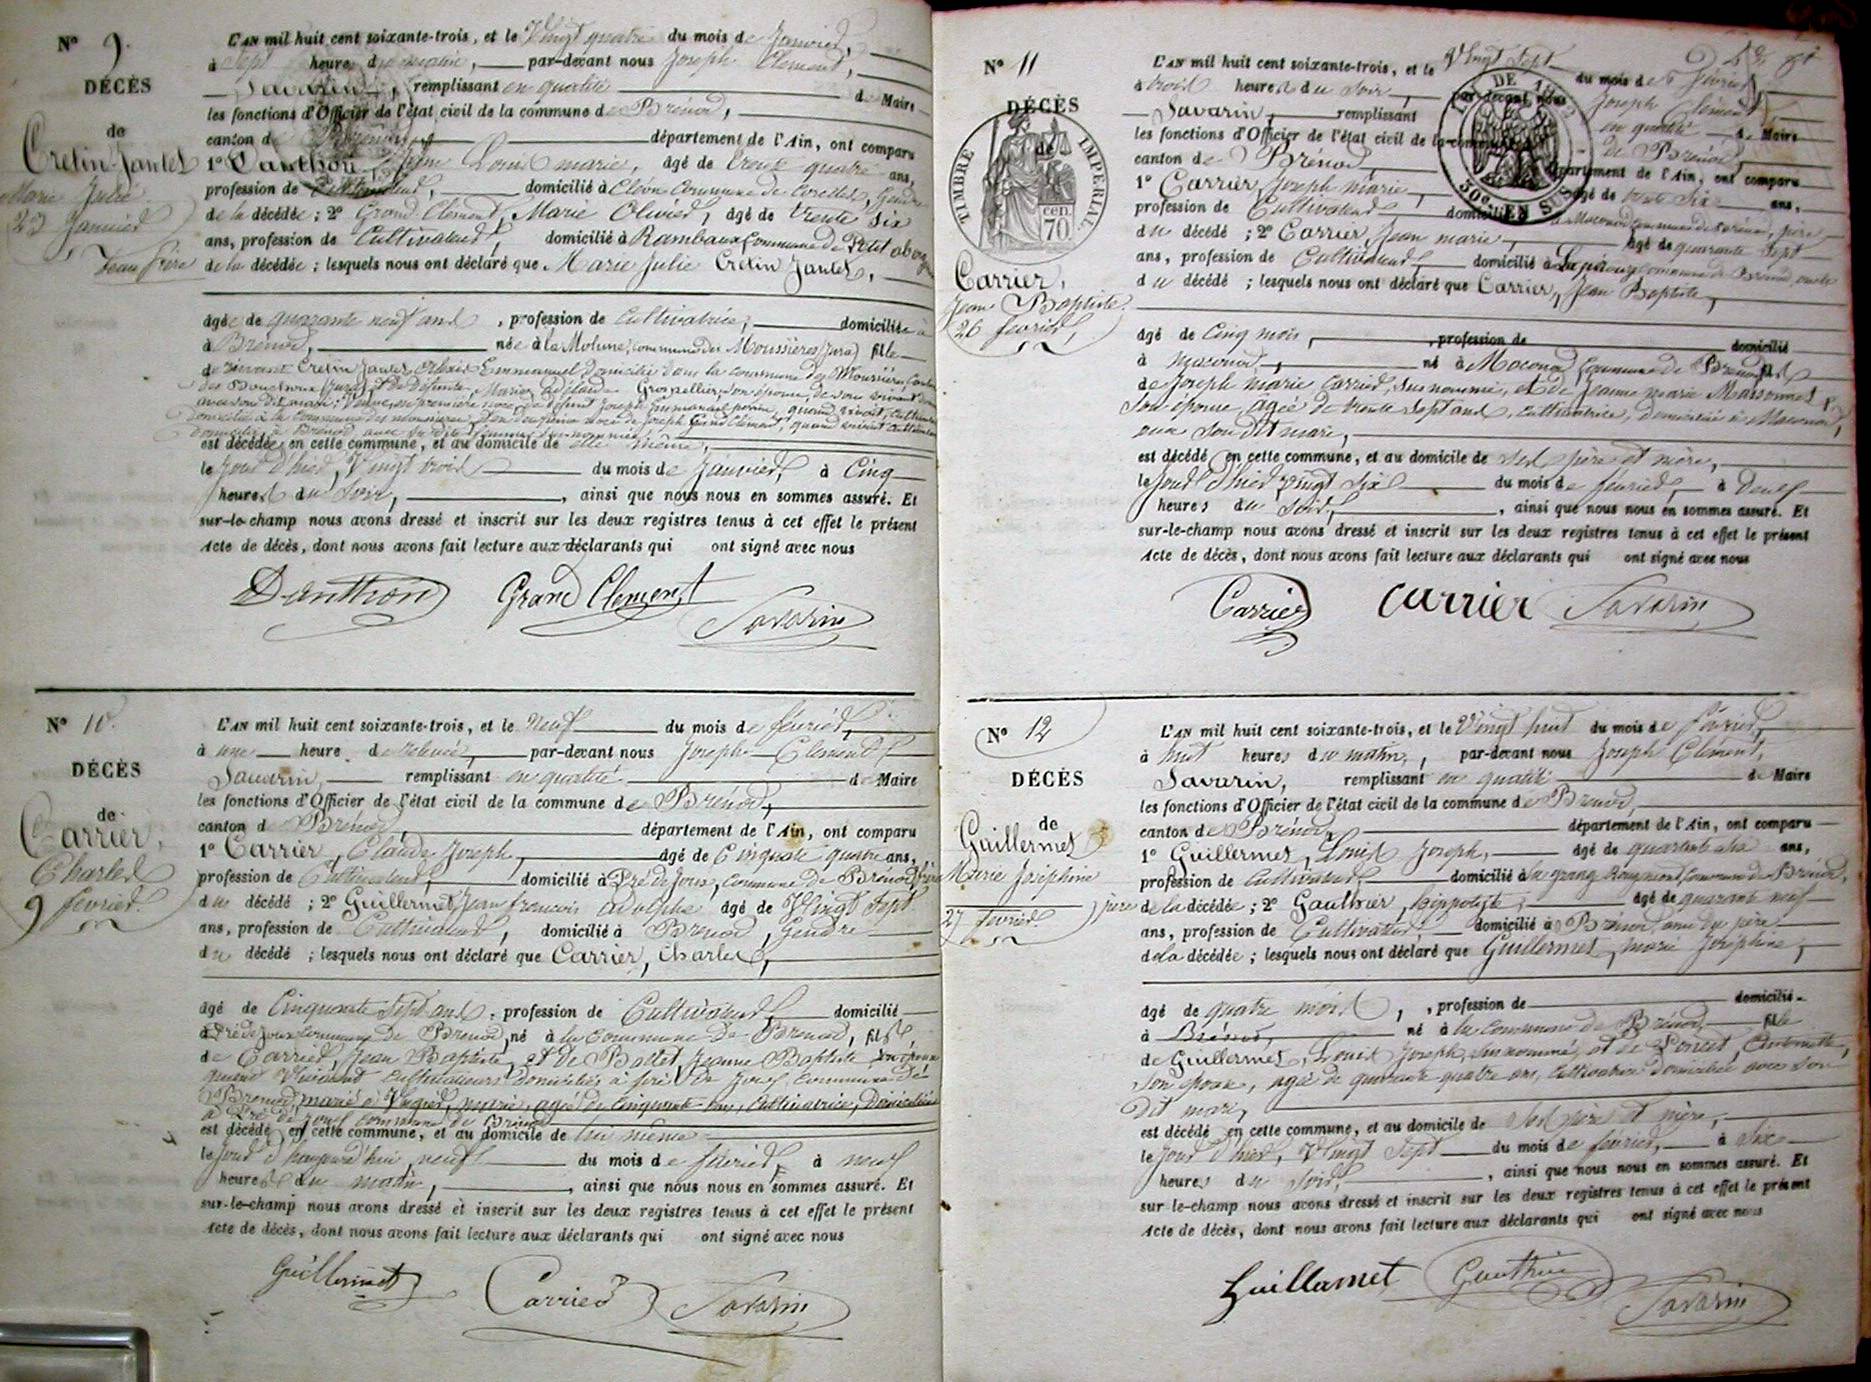 N° 9.
DÉCÈS
de
Cretin-Jantet
Marie Julie
23 Janvier
L'AN mil huit cent soixante-trois, et le Vingt quatre du mois de Janvier,
à Sept heures du matin, par-devant nous Joseph Clement,
Savarin, remplissant en qualité de Maire
les fonctions d'Officier de l'état civil de la commune de Brénod,
canton de Brénod département de l'Ain, ont comparu
1° Danthon, Louis marie, âgé de trente quatre ans,
profession de Cultivateur, domicilié à commune de Corcelles, Gendre
de la décédée ; 2° Grand Clement, Marie Olivier, âgé de trente six
ans, profession de Cultivateur, domicilié à Rambaux Commune de Petit abergement
beau frère de la décédée ; lesquels nous ont déclaré que Marie Julie Cretin Jantet,
âgée de quarante neuf ans, profession de Cultivatrice, domiciliée
à Brénod, née à la Molune, commune des Moussières (Jura) fille
de vivant Cretin Jantet Emmanuel domicilié dans la commune des Moussières, Canton
des Bouchoux, Jura, et de Défunte Marie Adélaïde Grospellier, son épouse, de son vivant
avec son dit mari ; Veuve, en première noce, de défunt Joseph Emmanuel perrin, quand vivait, cultivateur
domicilié à la commune des moussières et en deuxième noce de Joseph Grand Clement, quand vivait Cultivateur
domicilié à Brénod
est décédée en cette commune, et au domicile de elle même,
le Jour d'hier, Vingt trois du mois de Janvier, à Cinq
heures du Soir, , ainsi que nous nous en sommes assuré. Et
sur-le-champ nous avons dressé et inscrit sur les deux registres tenus à cet effet le présent
Acte de décès, dont nous avons fait lecture aux déclarants qui ont signé avec nous
Danthon Grand Clement Savarin
N° 10.
DÉCÈS
de
Carrier,
Charles
9 février.
L'AN mil huit cent soixante-trois, et le Neuf du mois de février,
à une heure de relevée, par-devant nous Joseph Clement
Savarin, remplissant en qualité de Maire
les fonctions d'Officier de l'état civil de la commune de Brénod,
canton de Brénod, département de l'Ain, ont comparu
1° Carrier, Claude Joseph, âgé de Cinquante quatre ans,
profession de Cultivateur, domicilié à Pré de Joux, commune de Brénod, frère
du décédé ; 2° Guillermet, Jean françois adolphe âgé de Vingt Sept
ans, profession de Cultivateur, domicilié à Brénod, Gendre
du décédé ; lesquels nous ont déclaré que Carrier, Charles,
âgé de Cinquante Sept ans, profession de Cultivateur, domicilié
à Pré de Joux Commune de Brénod, né à la Commune de Brénod, fils
de Carrier, Jean Baptiste, et de Ballet, Jeanne Baptiste son épouse
quand Vivaient cultivateurs domiciliés à pré de Joux, commune de
Brénod, marié à marie, agée de Cinquante ans, Cultivatrice, Domiciliée
à Pré de Joux commune de Brénod
est décédé en cette commune, et au domicile de lui même
le Jour d'haujourd'hui neuf du mois de février, à neuf
heures du matin, , ainsi que nous nous en sommes assuré. Et
sur-le-champ nous avons dressé et inscrit sur les deux registres tenus à cet effet le présent
Acte de décès, dont nous avons fait lecture aux déclarants qui ont signé avec nous
Guillermet Carrier Savarin
N° 11
DÉCÈS
de
TIMBRE IMPÉRIAL
cen. 70
Carrier,
Jean Baptiste
26 février,
50c EN SUS
L'AN mil huit cent soixante-trois, et le Vingt Sept du mois de février,
à trois heures du Soir, par-devant nous Joseph Clément
Savarin, remplissant en qualité de Maire
les fonctions d'Officier de l'état civil de la commune de Brénod,
canton de Brénod, département de l'Ain, ont comparu
1° Carrier, Joseph marie, âgé de trente Six ans,
profession de Cultivateur domicilié à Maconod commune de Brénod, père
du décédé ; 2° Carrier, Jean marie, âgé de quarante Sept
ans, profession de Cultivateur, domicilié à commune de Brénod, oncle
du décédé ; lesquels nous ont déclaré que Carrier, Jean Baptiste,
âgé de Cinq mois, , profession de domicilié
à Maconod, né à Maconod, Commune de Brénod, fils
de Joseph marie Carrier, susnommé, et de Jeanne marie Massonnet
son épouse, agée de trente Sept ans, cultivatrice, domiciliée à Maconod,
avec son dit mari,
est décédé en cette commune, et au domicile de ses père et mère,
le Jour d'hier vingt six du mois de février, à Deux
heures du Soir, , ainsi que nous nous en sommes assuré. Et
sur-le-champ nous avons dressé et inscrit sur les deux registres tenus à cet effet le présent
Acte de décès, dont nous avons fait lecture aux déclarants qui ont signé avec nous
Carrier Carrier Savarin
N° 12
DÉCÈS
de
Guillermet
Marie Joséphine
27 février.
L'AN mil huit cent soixante-trois, et le Vingt huit du mois de février,
à huit heures du matin, par-devant nous Joseph Clement,
Savarin, remplissant en qualité de Maire
les fonctions d'Officier de l'état civil de la commune de Brénod,
canton de Brénod, département de l'Ain, ont comparu
1° Guillermet, Louis Joseph, âgé de quarante six ans,
profession de Cultivateur, domicilié à la grange Raymond, Commune de Brénod,
père de la décédée ; 2° Gauthier, hippolyte, âgé de quarante neuf
ans, profession de Cultivateur, domicilié à Brénod, ami du père
de la décédée ; lesquels nous ont déclaré que Guillermet, marie Joséphine,
âgé de quatre mois, , profession de domicilié
à Brénod, né à la commune de Brénod, fille
de Guillermet, Louis Joseph, susnommé, et de Poncet, Antoinette,
son épouse, agée de quarante quatre ans, cultivatrice domiciliée avec son
dit mari,
est décédé en cette commune, et au domicile de ses père et mère,
le Jour d'hier, Vingt Sept du mois de février, à Six
heures du Soir, , ainsi que nous nous en sommes assuré. Et
sur le-champ nous avons dressé et inscrit sur les deux registres tenus à cet effet le présent
Acte de décès, dont nous avons fait lecture aux déclarants qui ont signé avec nous
Guillamet Gauthier Savarin